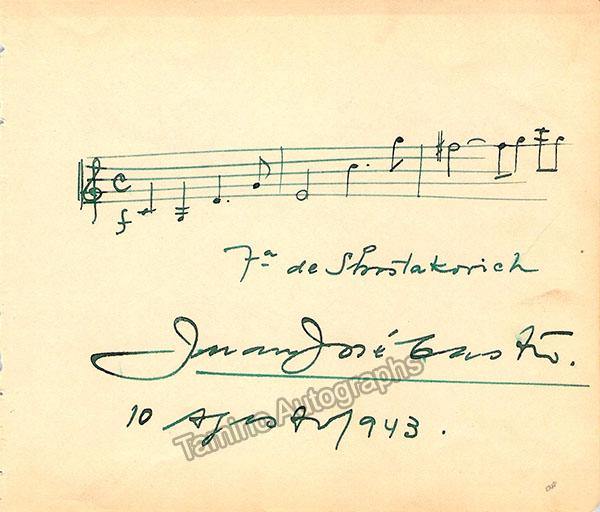 f
7ª de Shostakovich
Juan José Castro.
10 Agosto 1943.
Tamino Autographs